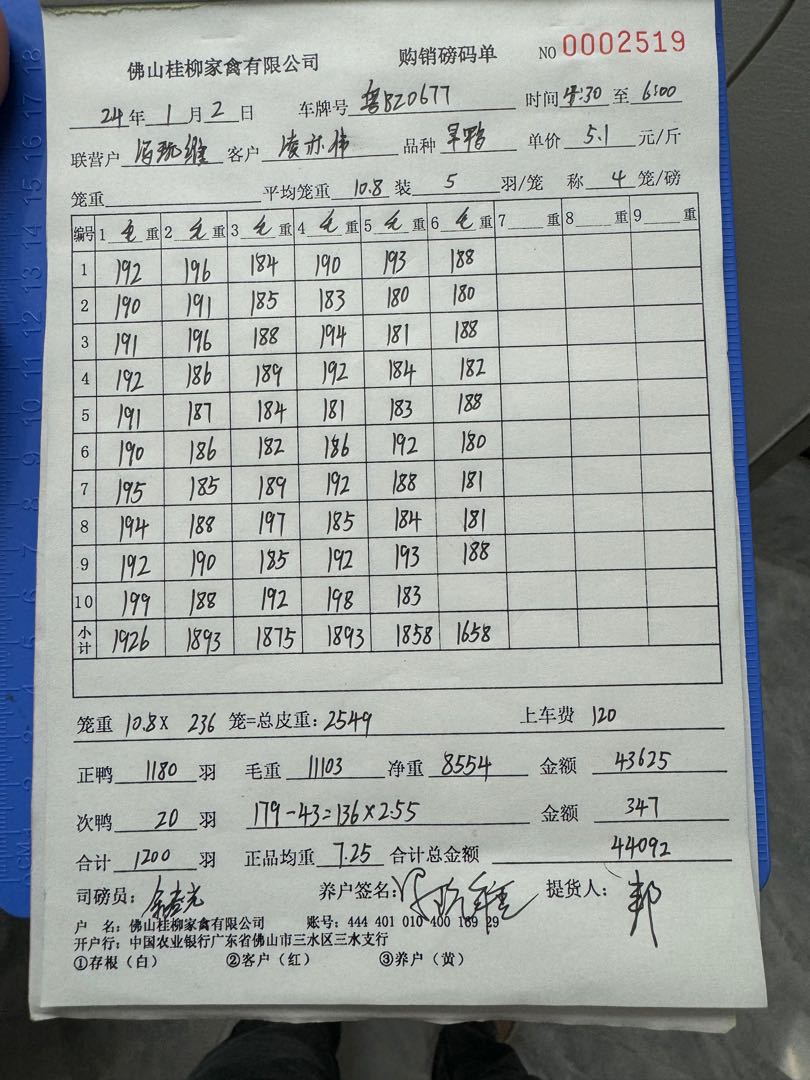 佛山桂柳家禽有限公司 购销磅码单 NO 0002519
24 年 1 月 2 日 车牌号 粤BZ0677 时间 4:30 至 6:00
联营户 客户 凌亦伟 品种 旱鸭 单价 5.1 元/斤
笼重 平均笼重 10.8 装 5 羽/笼 称 4 笼/磅
编号 1 毛 重 2 毛 重 3 毛 重 4 毛 重 5 毛 重 6 毛 重 7 重 8 重 9 重
1 192 196 184 190 193 188
2 190 191 185 183 180 180
3 191 196 188 194 181 188
4 192 186 189 192 184 182
5 191 187 184 181 183 188
6 190 186 182 186 192 180
7 195 185 189 192 188 181
8 194 188 197 185 184 181
9 192 190 185 192 193 188
10 199 188 192 198 183
小计 1926 1893 1875 1893 1858 1658
笼重 10.8 X 236 笼=总皮重: 2549 上车费 120
正鸭 1180 羽 毛重 11103 净重 8554 金额 43625
次鸭 20 羽 179-43=136×2.55 金额 347
合计 1200 羽 正品均重 7.25 合计总金额 44092
司磅员: 养户签名: 提货人: 邦
户 名: 佛山桂柳家禽有限公司 账号: 444 401 010 400 169 29
开户行: 中国农业银行广东省佛山市三水区三水支行
①存根（白） ②客户（红） ③养户（黄）